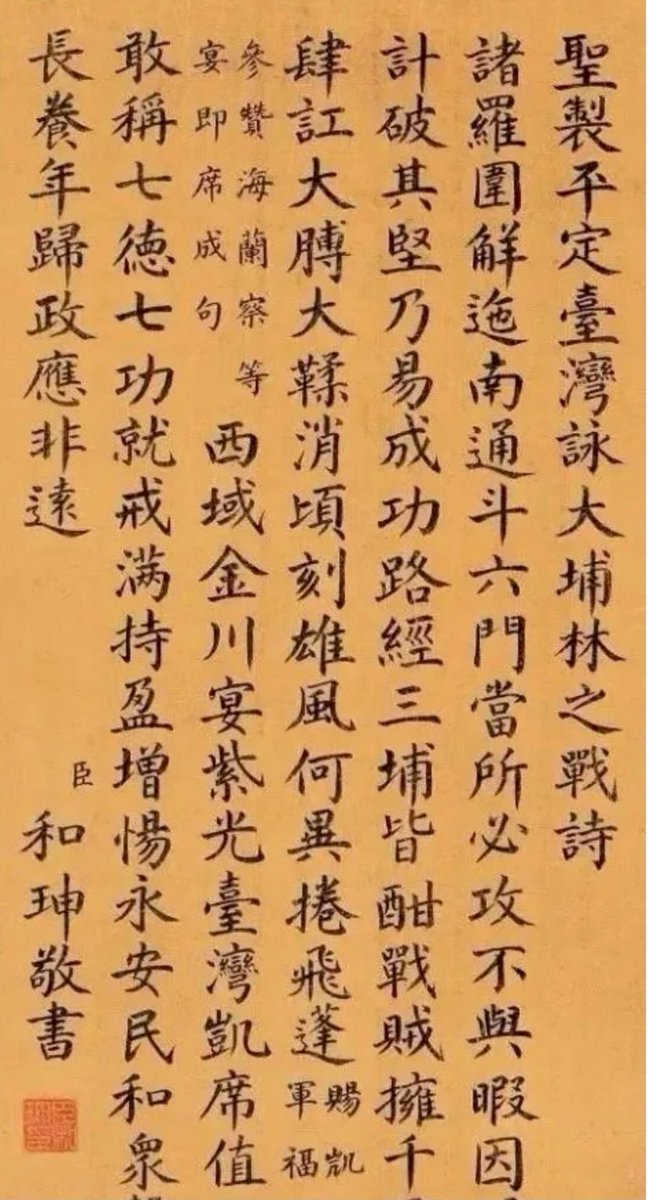 聖製平定臺灣詠大埔林之戰詩
諸羅圍解迤南通斗六門當所必攻不與暇因
計破其堅乃易成功路經三埔皆酣戰賊擁千
肆訌大膊大鞣消頃刻雄風何異捲飛蓬
賜凱
軍福
參贊海蘭察等
宴即席成句
西域金川宴紫光臺灣凱席值
敢稱七德七功就戒滿持盈增惕永安民和眾
長養年歸政應非遠
臣和珅敬書